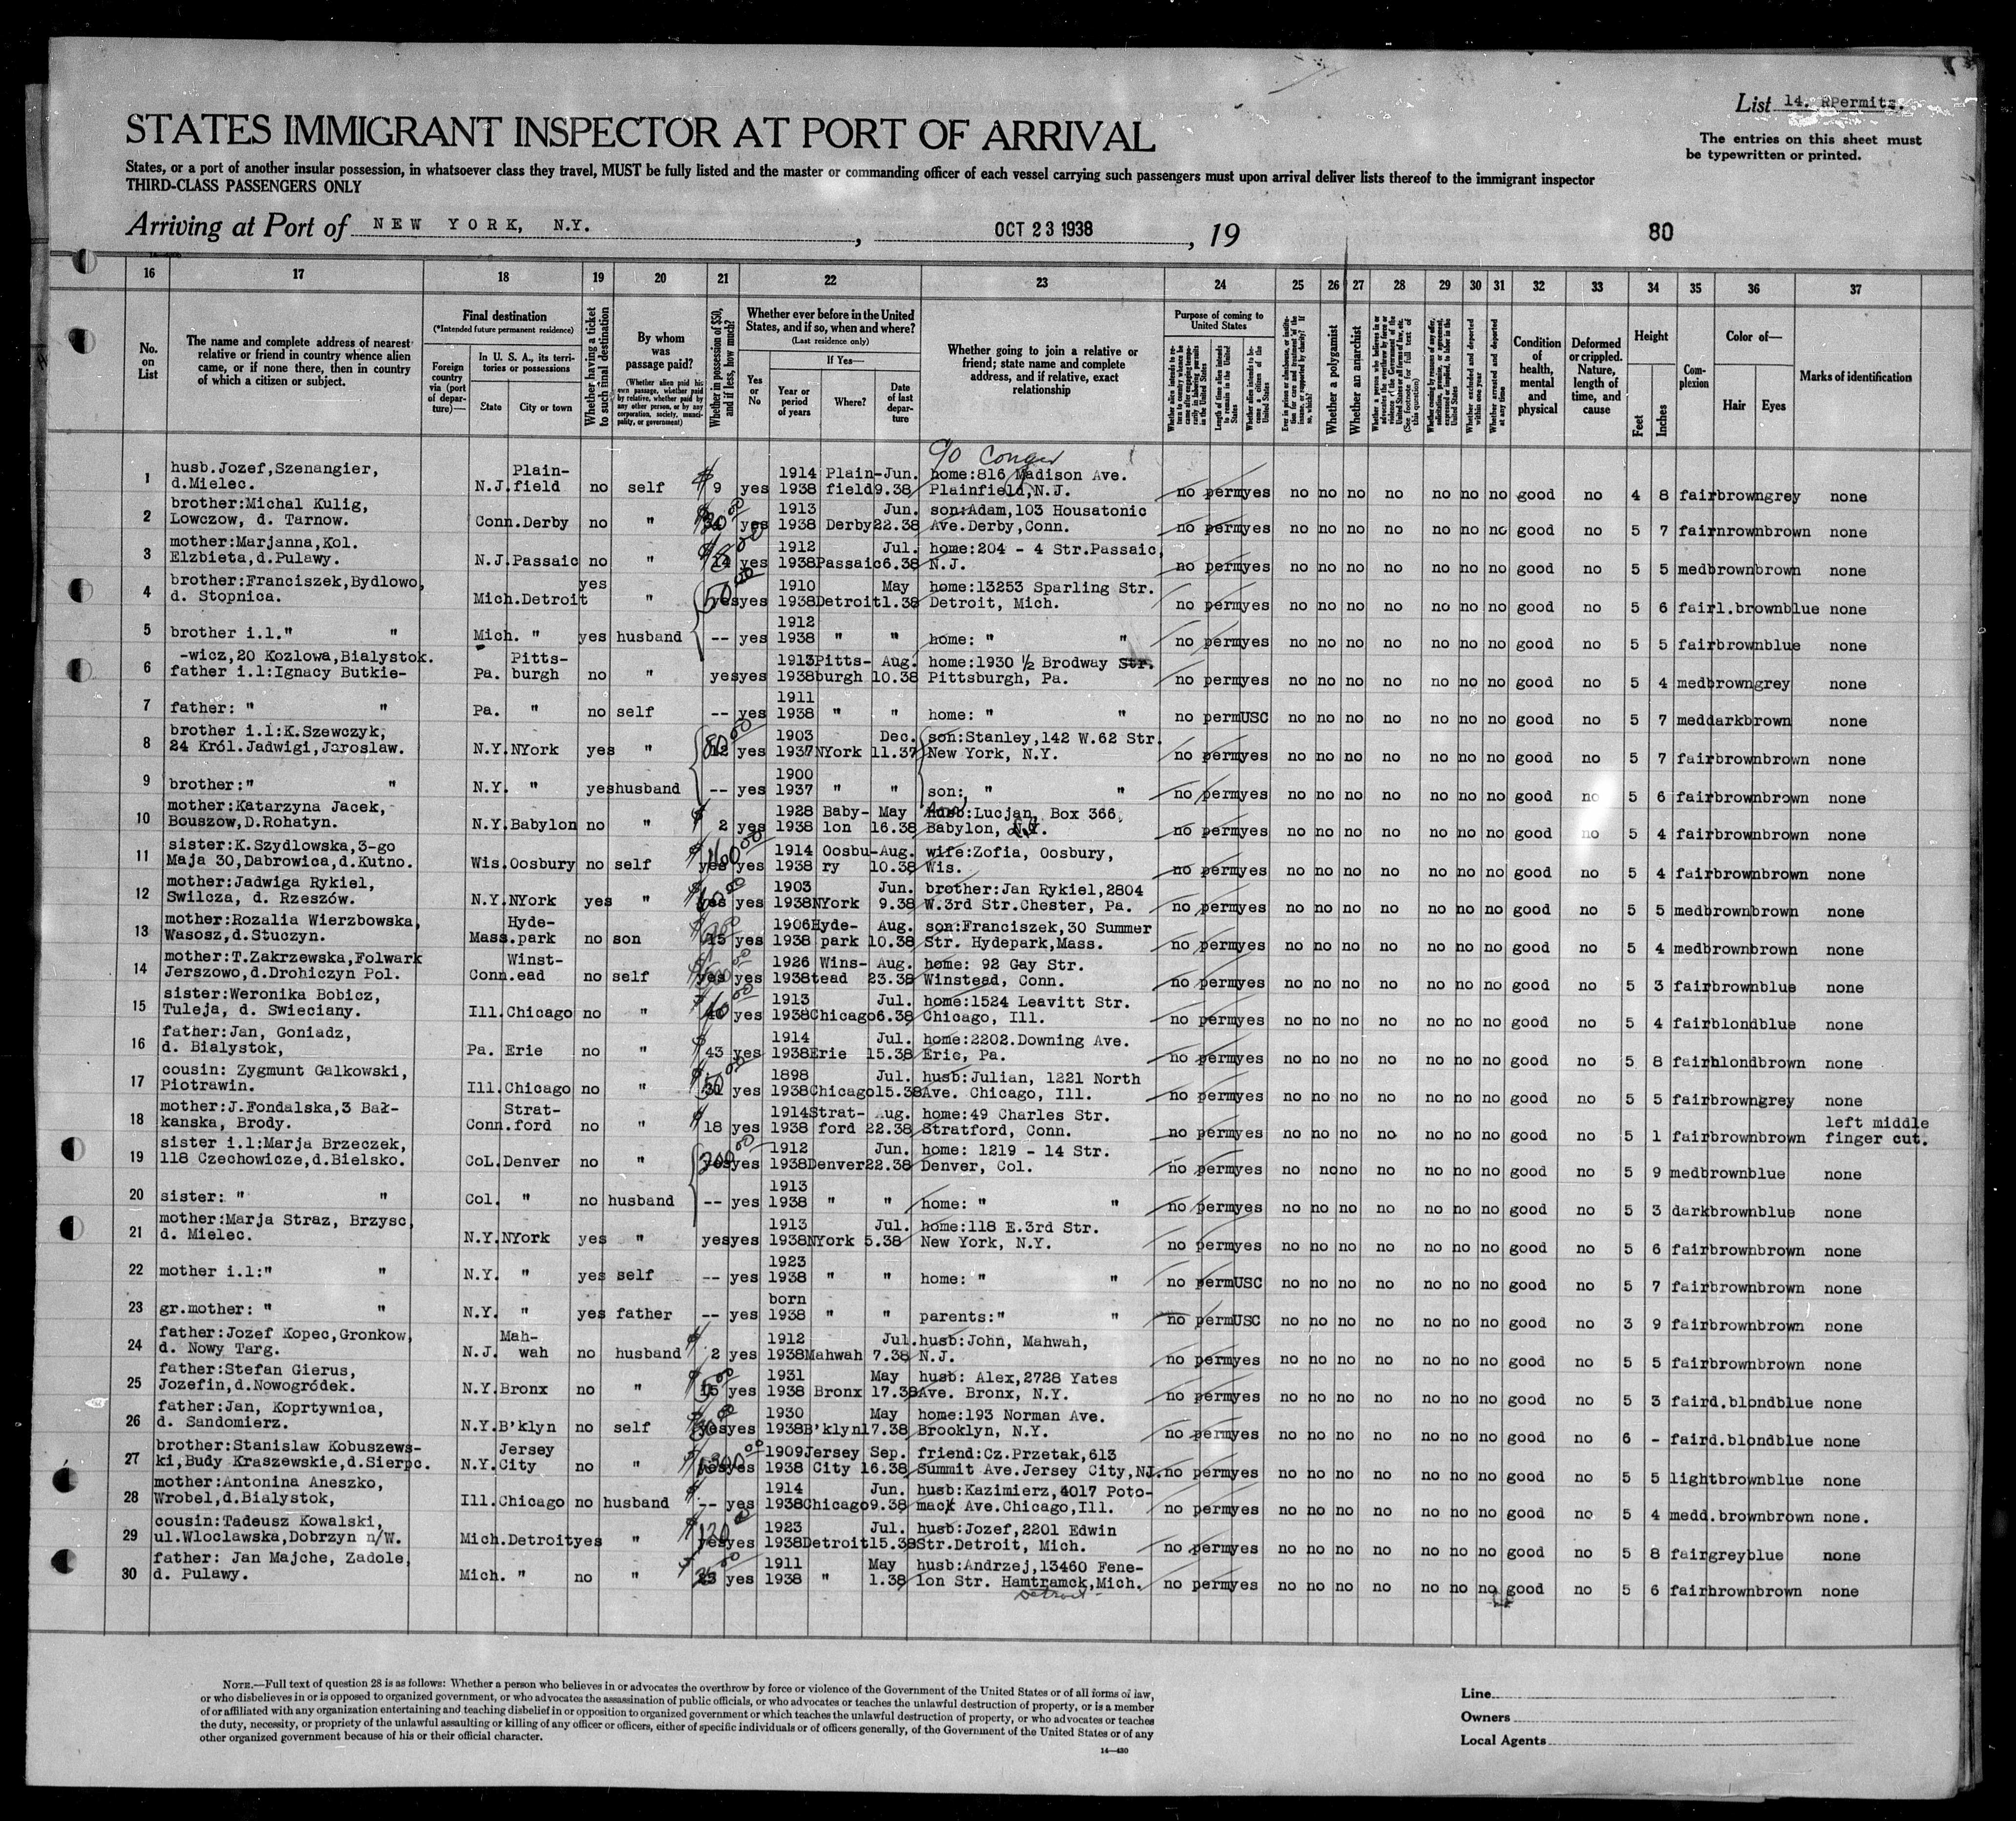 List 14. RPermits.
STATES IMMIGRANT INSPECTOR AT PORT OF ARRIVAL
The entries on this sheet must
be typewritten or printed.
States, or a port of another insular possession, in whatsoever class they travel, MUST be fully listed and the master or commanding officer of each vessel carrying such passengers must upon arrival deliver lists thereof to the immigrant inspector
THIRD-CLASS PASSENGERS ONLY
Arriving at Port of NEW YORK, N.Y. , OCT 23 1938 , 19
80
16 17 18 19 20 21 22 23 24 25 26 27 28 29 30 31 32 33 34 35 36 37
No. on List
The name and complete address of nearest relative or friend in country whence alien came, or if none there, then in country of which a citizen or subject.
Final destination
(*Intended future permanent residence)
Foreign country via (port of departure)—
In U. S. A., its territories or possessions
State City or town
Whether having a ticket to such final destination
By whom was passage paid?
(Whether alien paid his own passage, whether paid by relative, whether paid by any other person, or by any corporation, society, municipality, or government)
Whether in possession of $50, and if less, how much?
Whether ever before in the United States, and if so, when and where?
(Last residence only)
Yes or No
If Yes—
Year or period of years
Where?
Date of last departure
Whether going to join a relative or friend; state name and complete address, and if relative, exact relationship
Purpose of coming to United States
Length of time alien intends to remain in the United States
Whether alien intends to become a citizen of the United States
Whether a polygamist
Whether an anarchist
Whether excluded and deported within one year
Whether arrested and deported at any time
Condition of health, mental and physical
Deformed or crippled. Nature, length of time, and cause
Height
Feet Inches
Complexion
Color of—
Hair Eyes
Marks of identification
c/o Conger
1 husb.Jozef,Szenangier, d.Mielec. N.J. Plain-field no self $ 9 yes 1914 1938 Plain-field Jun. 9.38 home:816 Madison Ave. Plainfield,N.J. no perm yes no no no no no no no good no 4 8 fair brown grey none
2 brother:Michal Kulig, Lowczow, d. Tarnow. Conn. Derby no " yes 1913 1938 Derby Jun. 22.38 son:Adam,103 Housatonic Ave.Derby,Conn. no perm yes no no no no no no no good no 5 7 fair nrown brown none
3 mother:Marjanna,Kol. Elzbieta,d.Pulawy. N.J. Passaic no " yes 1912 1938 Passaic Jul. 6.38 home:204 - 4 Str.Passaic, N.J. no perm yes no no no no no no no good no 5 5 med brown brown none
4 brother:Franciszek,Bydlowo, d. Stopnica. Mich. Detroit yes " 50 yes yes 1910 1938 Detroit May 1.38 home:13253 Sparling Str. Detroit, Mich. no perm yes no no no no no no no good no 5 6 fair l.brown blue none
5 brother i.l." " Mich. " yes husband -- yes 1912 1938 " " home: " " no perm yes no no no no no no no good no 5 5 fair brown blue none
6 -wicz,20 Kozlowa,Bialystok. father i.l:Ignacy Butkie- Pa. Pitts-burgh no " yes yes 1913 1938 Pitts-burgh Aug. 10.38 home:1930 ½ Brodway Str. Pittsburgh, Pa. no perm yes no no no no no no no good no 5 4 med brown grey none
7 father: " " Pa. " no self -- yes 1911 1938 " " home: " " no perm USC no no no no no no no good no 5 7 med dark brown none
8 brother i.l:K.Szewczyk, 24 Król.Jadwigi,Jaroslaw. N.Y. NYork yes " yes 1903 1937 NYork Dec. 11.37 son:Stanley,142 W.62 Str. New York, N.Y. no perm yes no no no no no no no good no 5 7 fair brown brown none
9 brother:" " N.Y. " yes husband -- yes 1900 1937 " " son: " " no perm yes no no no no no no no good no 5 6 fair brown brown none
10 mother:Katarzyna Jacek, Bouszow,D.Rohatyn. N.Y. Babylon no " $ 2 yes 1928 1938 Baby-lon May 16.38 husb:Lucjan, Box 366, Babylon, N.Y. no perm yes no no no no no no no good no 5 4 fair brown brown none
11 sister:K.Szydlowska,3-go Maja 30,Dabrowica,d.Kutno. Wis. Oosbury no self yes yes 1914 1938 Oosbu-ry Aug. 10.38 wife:Zofia, Oosbury, Wis. no perm yes no no no no no no no good no 5 4 fair brown brown none
12 mother:Jadwiga Rykiel, Swilcza, d. Rzeszów. N.Y. NYork yes " yes yes 1903 1938 NYork Jun. 9.38 brother:Jan Rykiel,2804 W.3rd Str.Chester, Pa. no perm yes no no no no no no no good no 5 5 med brown brown none
13 mother:Rozalia Wierzbowska, Wasosz,d.Stuczyn. Mass. Hyde-park no son yes 1906 1938 Hyde-park Aug. 10.38 son:Franciszek,30 Summer Str. Hydepark,Mass. no perm yes no no no no no no no good no 5 4 med brown brown none
14 mother:T.Zakrzewska,Folwark Jerszowo,d.Drohiczyn Pol. Conn. Winst-ead no self yes yes 1926 1938 Wins-tead Aug. 23.38 home: 92 Gay Str. Winstead, Conn. no perm yes no no no no no no no good no 5 3 fair brown blue none
15 sister:Weronika Bobicz, Tuleja, d. Swieciany. Ill. Chicago no " yes 1913 1938 Chicago Jul. 6.38 home:1524 Leavitt Str. Chicago, Ill. no perm yes no no no no no no no good no 5 4 fair blond blue none
16 father:Jan, Goniadz, d. Bialystok, Pa. Erie no " $ 43 yes 1914 1938 Erie Jul. 15.38 home:2202.Downing Ave. Erie, Pa. no perm yes no no no no no no no good no 5 8 fair blond brown none
17 cousin: Zygmunt Galkowski, Piotrawin. Ill. Chicago no " yes 1898 1938 Chicago Jul. 15.38 husb:Julian, 1221 North Ave. Chicago, Ill. no perm yes no no no no no no no good no 5 5 fair brown grey none
18 mother:J.Fondalska,3 Bał-kanska, Brody. Conn. Strat-ford no " $ 18 yes 1914 1938 Strat-ford Aug. 22.38 home:49 Charles Str. Stratford, Conn. no perm yes no no no no no no no good no 5 1 fair brown brown left middle finger cut.
19 sister i.l:Marja Brzeczek, 118 Czechowicze,d.Bielsko. CoL. Denver no " 200 yes yes 1912 1938 Denver Jun. 22.38 home: 1219 - 14 Str. Denver, Col. no perm yes no no no no no no no good no 5 9 med brown blue none
20 sister: " " Col. " no husband -- yes 1913 1938 " " home: " " no perm yes no no no no no no no good no 5 3 dark brown blue none
21 mother:Marja Straz, Brzysc, d. Mielec. N.Y. NYork yes " yes yes 1913 1938 NYork Jul. 5.38 home:118 E.3rd Str. New York, N.Y. no perm yes no no no no no no no good no 5 6 fair brown brown none
22 mother i.l:" " N.Y. " yes self -- yes 1923 1938 " " home: " " no perm USC no no no no no no no good no 5 7 fair brown brown none
23 gr.mother: " " N.Y. " yes father -- yes born 1938 " " parents:" " no perm USC no no no no no no no good no 3 9 fair brown brown none
24 father:Jozef Kopec,Gronkow, d. Nowy Targ. N.J. Mah-wah no husband $ 2 yes 1912 1938 Mahwah Jul. 7.38 husb:John, Mahwah, N.J. no perm yes no no no no no no no good no 5 5 fair brown brown none
25 father:Stefan Gierus, Jozefin,d.Nowogródek. N.Y. Bronx no " 15 yes 1931 1938 Bronx May 17.38 husb: Alex,2728 Yates Ave. Bronx, N.Y. no perm yes no no no no no no no good no 5 3 fair d.blond blue none
26 father:Jan, Koprtywnica, d. Sandomierz. N.Y. B'klyn no self yes yes 1930 1938 B'klyn May 17.38 home:193 Norman Ave. Brooklyn, N.Y. no perm yes no no no no no no no good no 6 - fair d.blond blue none
27 brother:Stanislaw Kobuszews-ki,Budy Kraszewskie,d.Sierpc. N.Y. Jersey City no " yes yes 1909 1938 Jersey City Sep. 16.38 friend:Cz.Przetak,613 Summit Ave.Jersey City,NJ. no perm yes no no no no no no no good no 5 5 light brown blue none
28 mother:Antonina Aneszko, Wrobel,d.Bialystok, Ill. Chicago no husband $ -- yes 1914 1938 Chicago Jun. 9.38 husb:Kazimierz,4017 Poto-mack Ave.Chicago,Ill. no perm yes no no no no no no no good no 5 4 med d.brown brown none.
29 cousin:Tadeusz Kowalski, ul.Wloclawska,Dobrzyn n/W. Mich. Detroit yes " 120 yes yes 1923 1938 Detroit Jul. 15.38 husb:Jozef,2201 Edwin Str.Detroit, Mich. no perm yes no no no no no no no good no 5 8 fair grey blue none
30 father: Jan Majche, Zadole, d. Pulawy. Mich. " no " yes 1911 1938 " May 1.38 husb:Andrzej,13460 Fene-lon Str. Hamtramck,Mich. Detroit no perm yes no no no no no no no good no 5 6 fair brown brown none
NOTE.—Full text of question 28 is as follows: Whether a person who believes in or advocates the overthrow by force or violence of the Government of the United States or of all forms of law,
or who disbelieves in or is opposed to organized government, or who advocates the assassination of public officials, or who advocates or teaches the unlawful destruction of property, or is a member
of or affiliated with any organization entertaining and teaching disbelief in or opposition to organized government or which teaches the unlawful destruction of property, or who advocates or teaches
the duty, necessity, or propriety of the unlawful assaulting or killing of any officer or officers, either of specific individuals or of officers generally, of the Government of the United States or of any
other organized government because of his or their official character.
14—430
Line
Owners
Local Agents